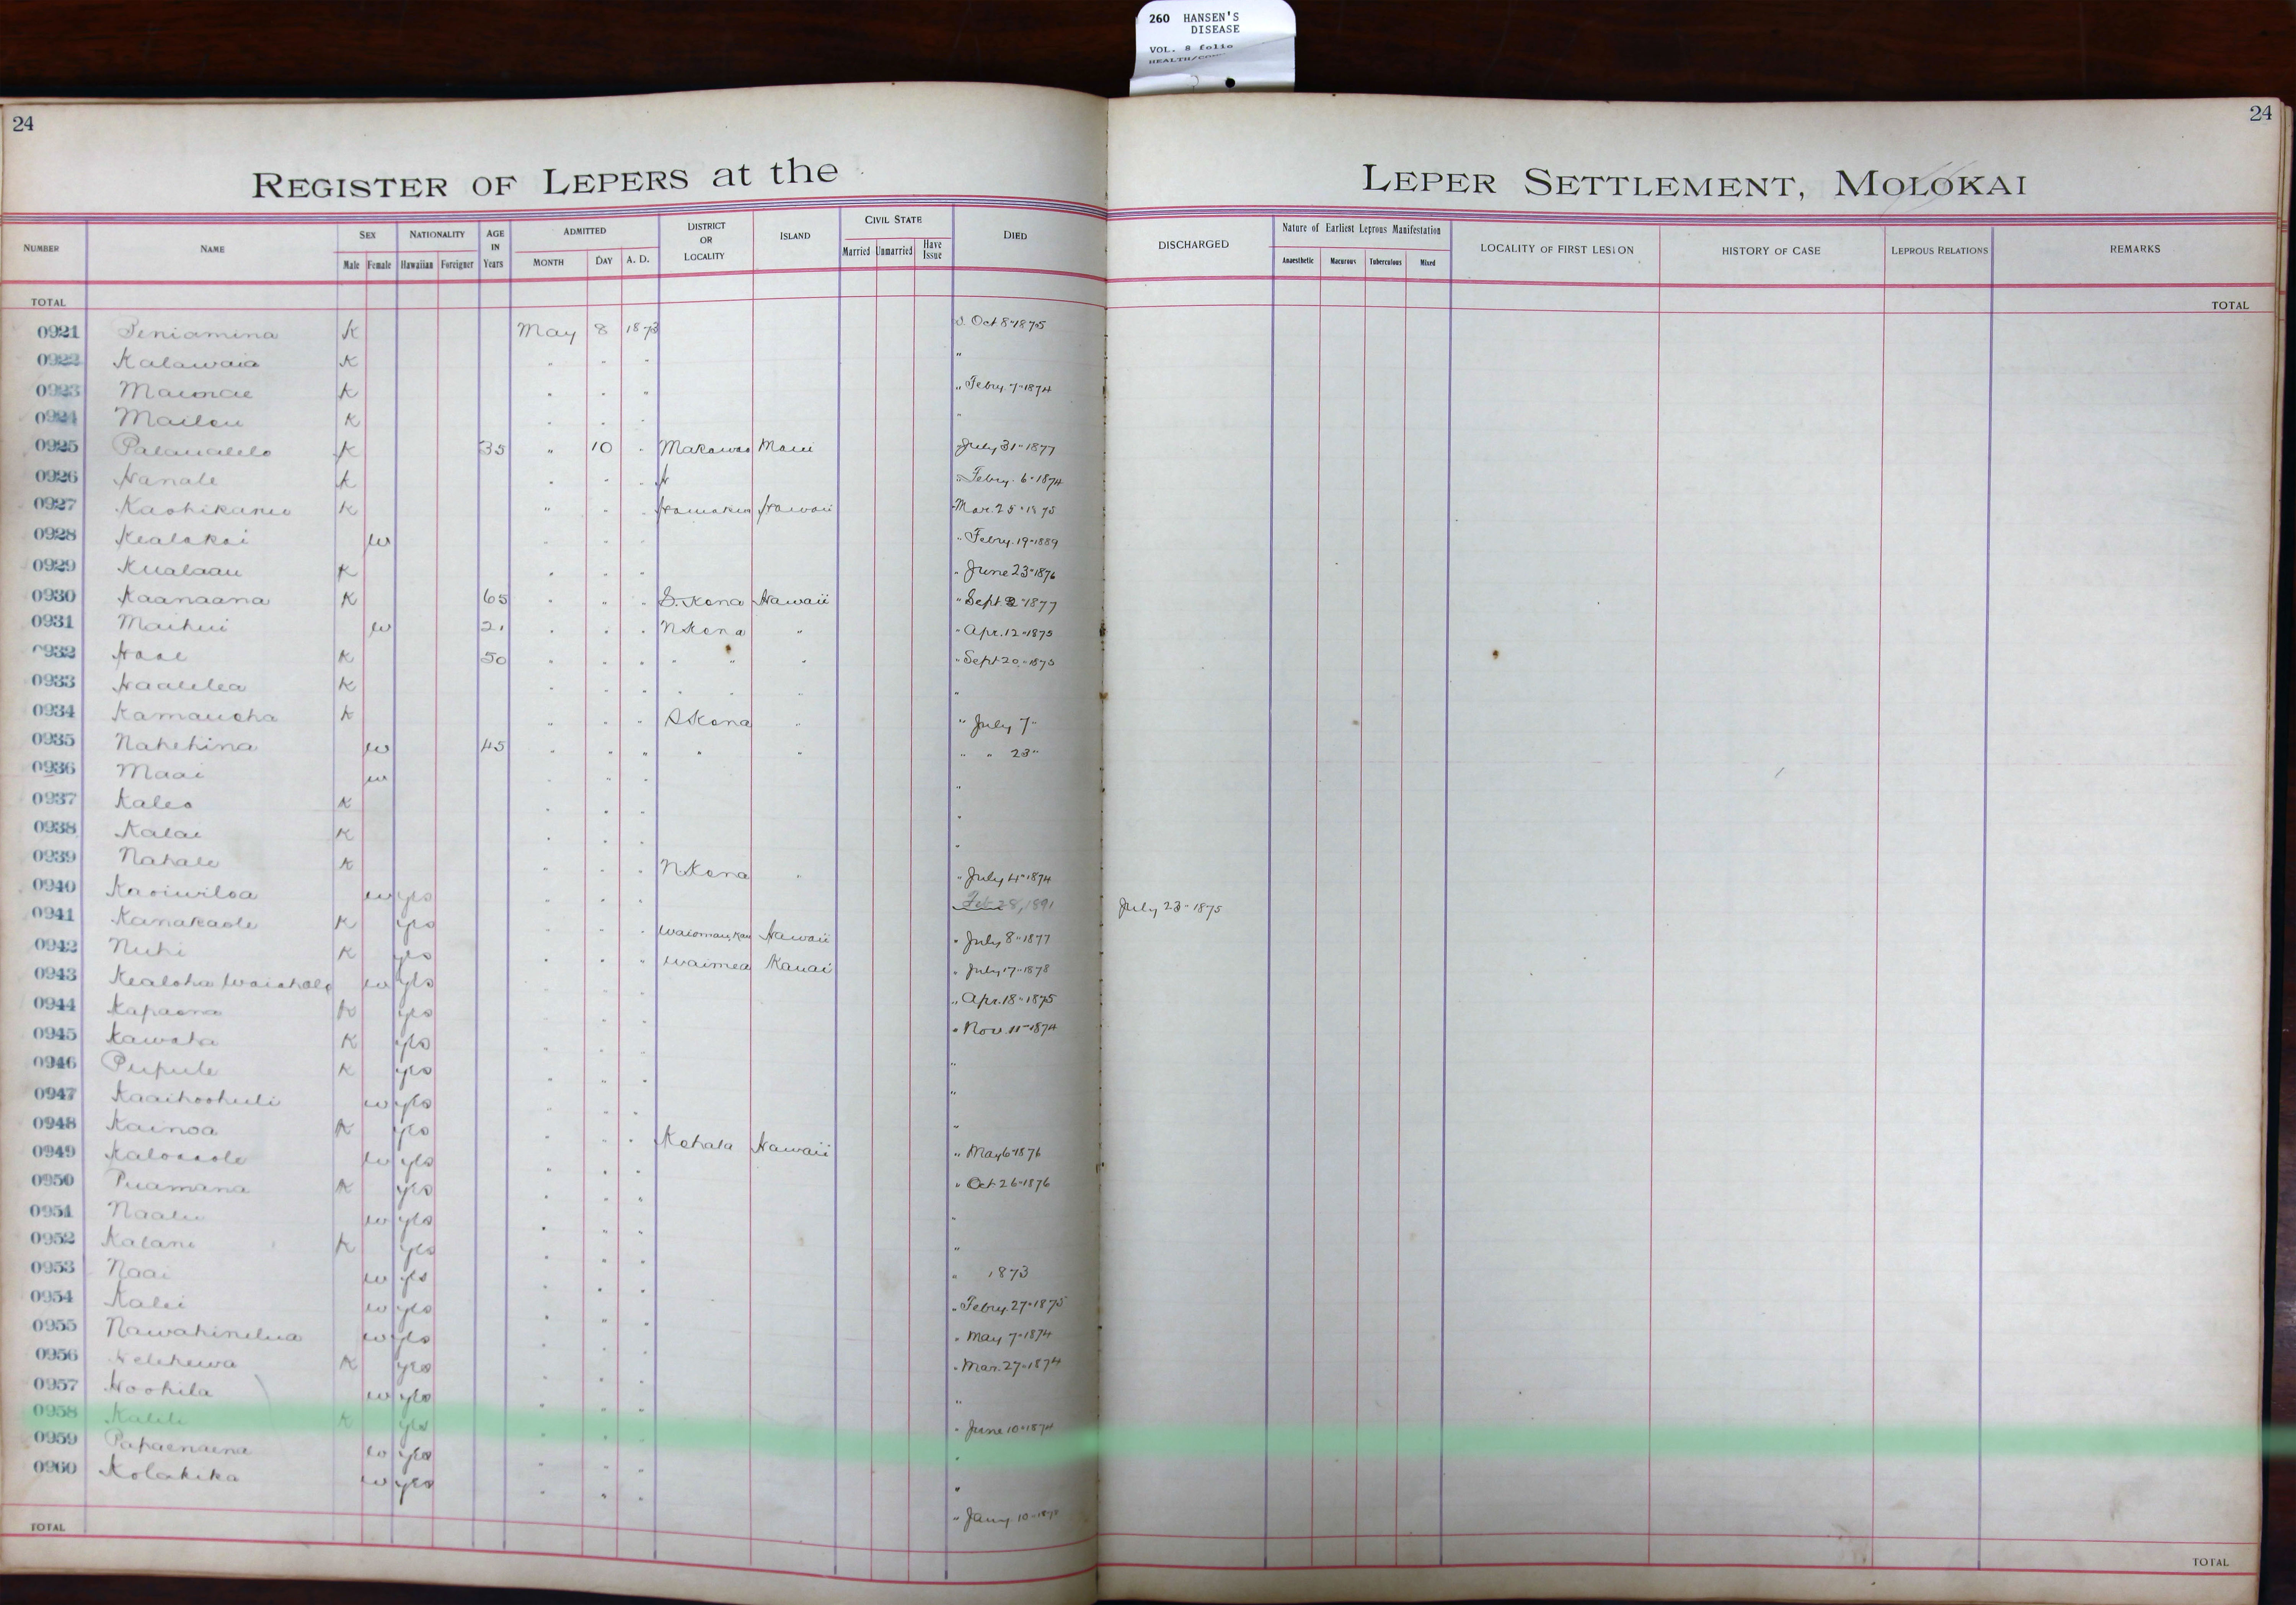 260 HANSEN'S
DISEASE
VOL. 8 folio
24
24
REGISTER OF LEPERS at the LEPER SETTLEMENT, MOLOKAI
NUMBER NAME SEX NATIONALITY AGE IN Years ADMITTED DISTRICT OR LOCALITY ISLAND CIVIL STATE DIED DISCHARGED Nature of Earliest Leprous Manifestation LOCALITY OF FIRST LESION HISTORY OF CASE LEPROUS RELATIONS REMARKS
Male Female Hawaiian Foreigner MONTH DAY A. D. Married Unmarried Have Issue Anaesthetic Macurous Tuberculous Mixed
TOTAL TOTAL
0921 Peniamina K May 8 1873 d. Oct 8" 1875
0922 Kalawaia K " " " "
0923 Maunae K " " " " Febry. 7" 1874
0924 Mailou K " " " "
0925 Palaualelo K 35 " 10 " Makawao Maui " July 31" 1877
0926 Hanale K " " " H " Febry. 6" 1874
0927 Kaohikanui K " " " Hamakua Hawaii " Mar. 25" 1875
0928 Kealakai w " " " " Febry. 19" 1889
0929 Kualaau K " " " " June 23" 1876
0930 Kaanaana K 65 " " " S. Kona Hawaii " Sept 2" 1877
0931 Maihui w 21 " " " N Kona " " Apr. 12" 1875
0932 Hoae K 50 " " " " " " " Sept 20" 1875
0933 Haalelea K " " " " " " "
0934 Kamauoha K " " " S Kona " " July 7"
0935 Nahehina w 45 " " " " " " " 23"
0936 Maai w " " " "
0937 Kaleo K " " " "
0938 Kalai K " " " "
0939 Nahale K " " " N Kona " " July 4" 1874
0940 Kaoiwiloa w yes " " " Feb 28, 1891 July 23" 1875
0941 Kanakaole K yes " " " Waiomau, Kau Hawaii " July 8" 1877
0942 Nuhi K yes " " " Waimea Kauai " July 17" 1878
0943 Kealoha Waiohale w yes " " " " Apr. 18" 1875
0944 Kapaona K yes " " " " Nov. 11" 1874
0945 Kawaha K yes " " " "
0946 Pupule K yes " " " "
0947 Kaaihoohuli w yes " " " "
0948 Kainoa K yes " " " Kohala Hawaii " May 6" 1876
0949 w yes " " " " Oct 26" 1876
0950 Puamana K yes " " " "
0951 Naalu w yes " " " "
0952 Kalani K yes " " " " 1873
0953 Naai w yes " " " " Febry. 27" 1875
0954 Kalei w yes " " " " May 7" 1874
0955 Nawahinelua w yes " " " " Mar. 27" 1874
0956 Kelekewa K yes " " " "
0957 Hoohila w yes " " " " June 10" 1874
0958 K yes " " " "
0959 Papaenaena w yes " " " "
0960 Kolakika w yes " " " " Jany. 10"
TOTAL TOTAL